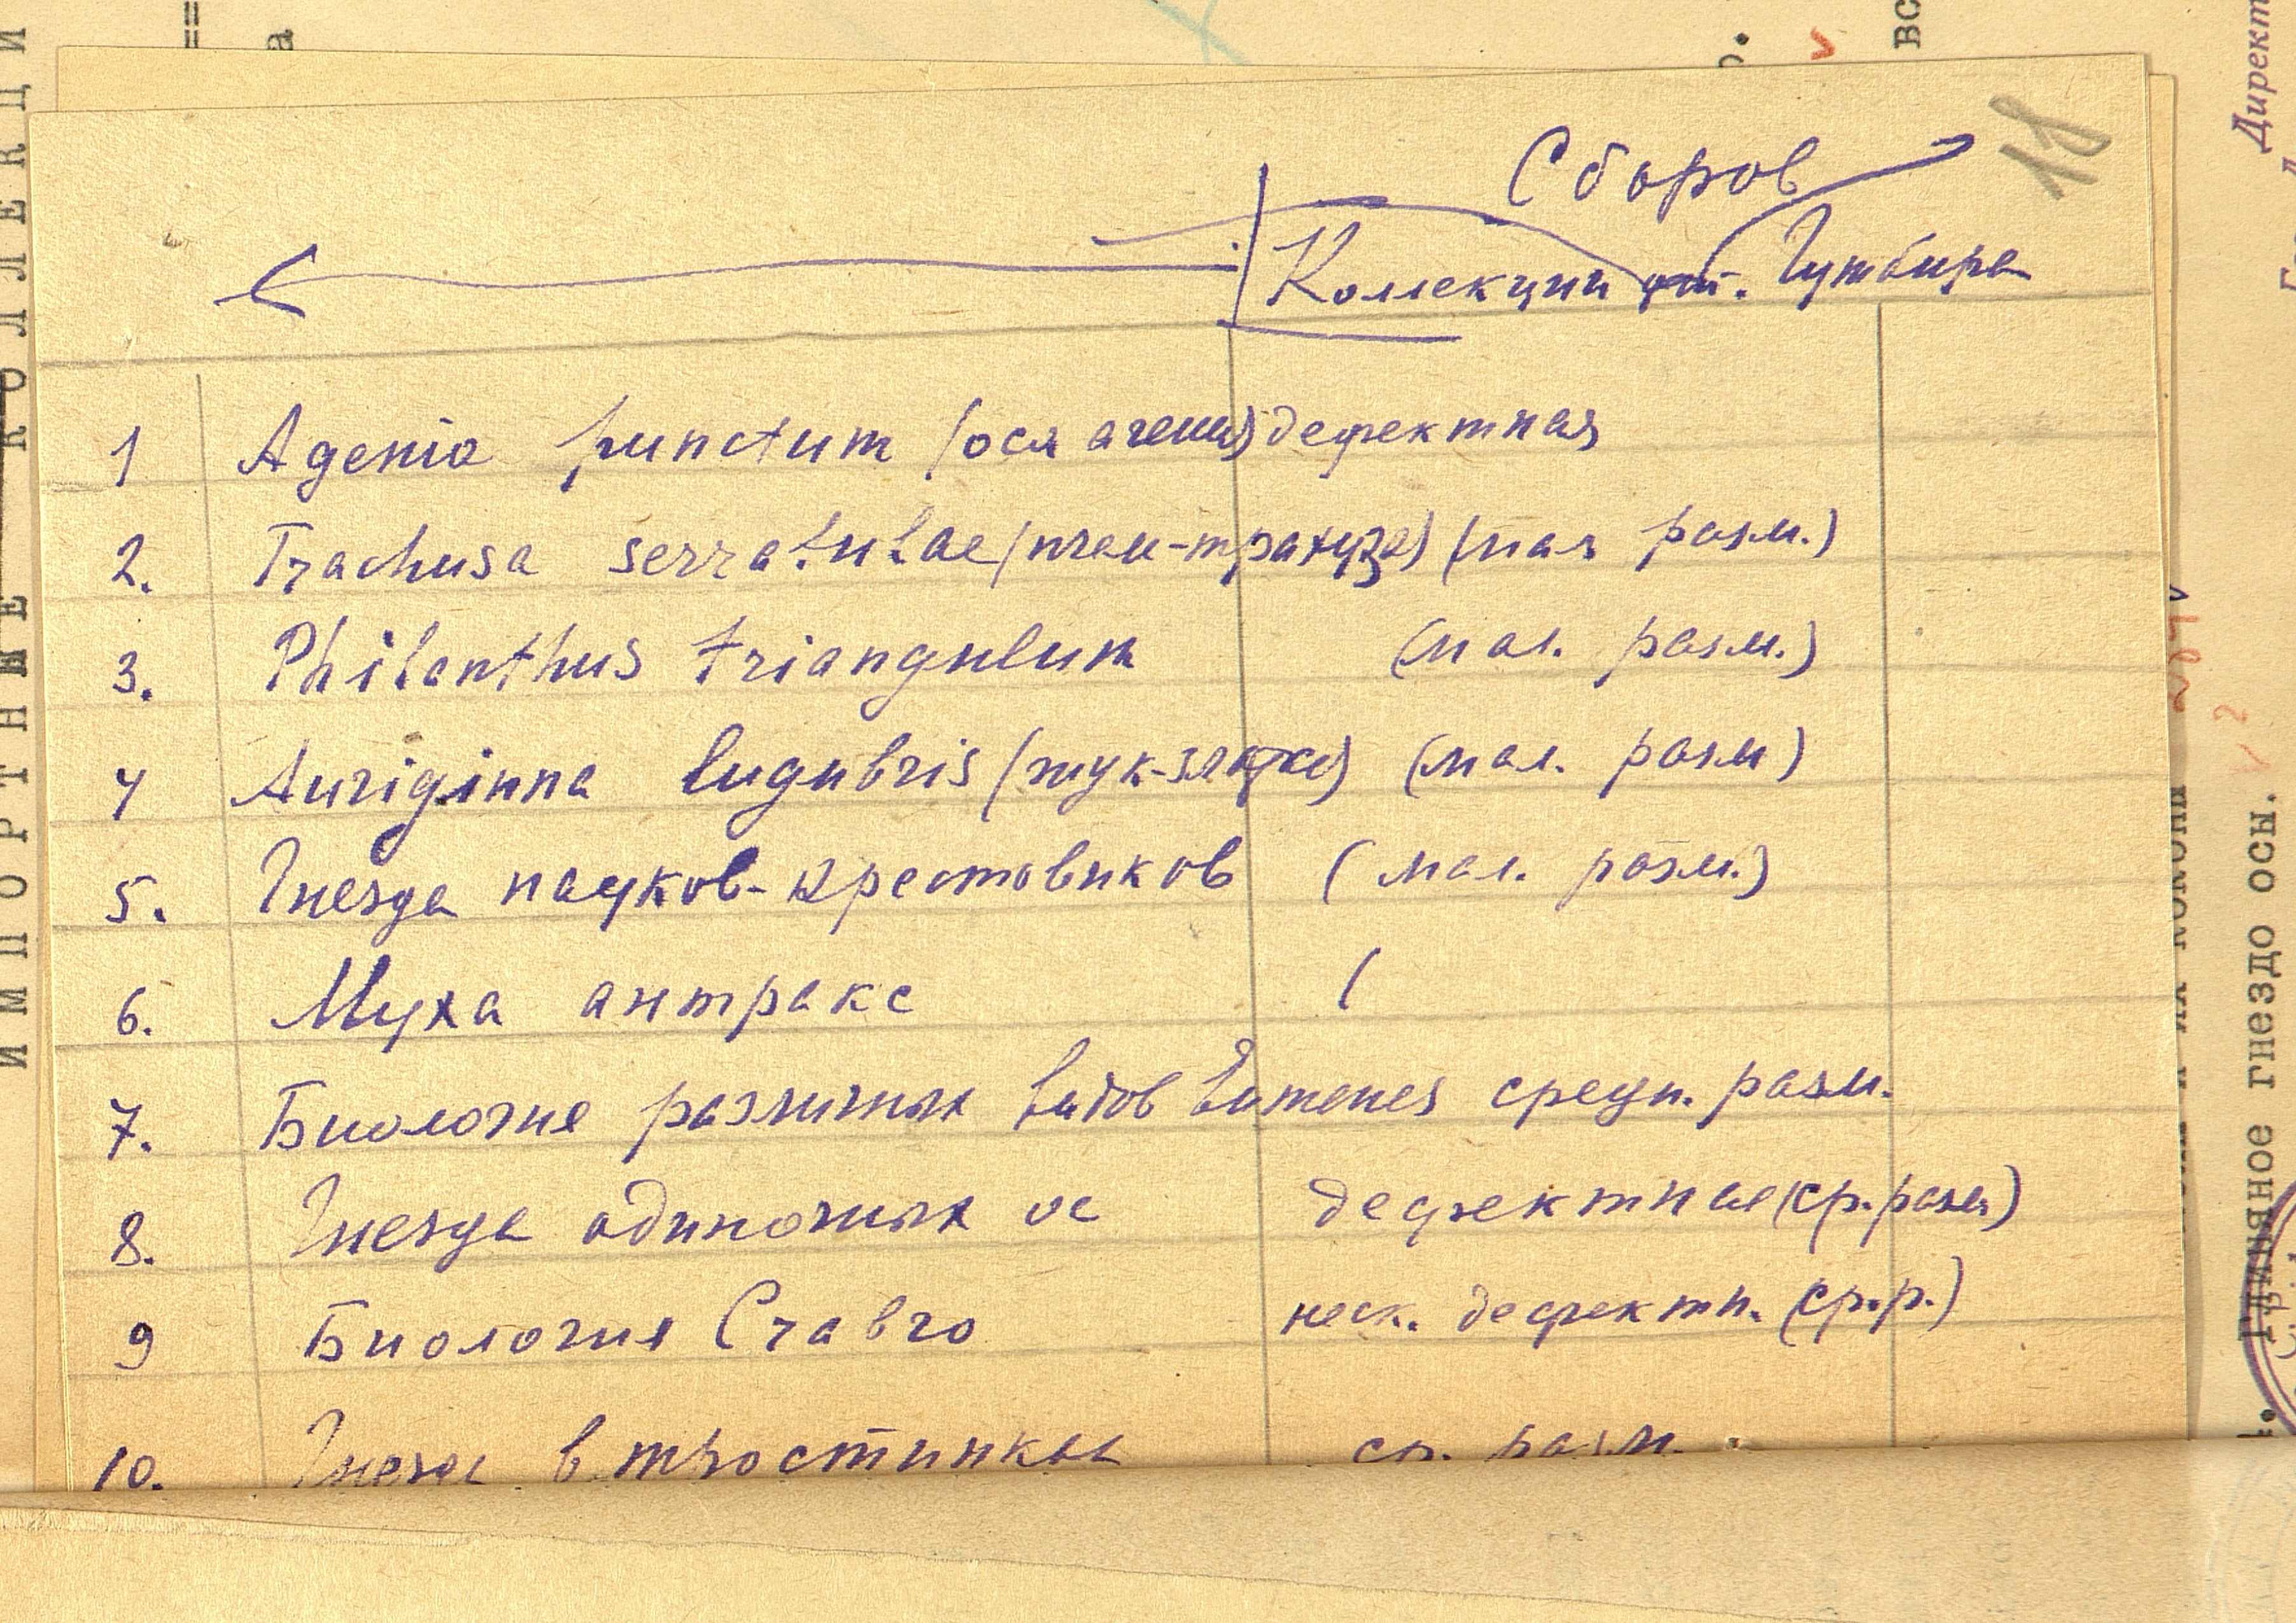 18
Сборов
Коллекции Гутбира
1 Agenia punctum (оса агения) дефектная
2. Trachusa serratulae (пчел-трахуза) (мал разм.)
3. Philanthus triangulum (мал. разм.)
4 Auriginna lugubris (жук-златка) (мал. разм)
5. Гнезда пауков-крестовиков (мал. разм.)
6. Муха антракс (
7. Биология различных видов Eumenes средн. разм.
8. Гнезда одиночных ос дефектная (ср. разм)
9 Биология Cravro неск. дефектн. (ср.р.)
10. Гнезда в тростинках ср. разм.
ИМПОРТНЫЕ КОЛЛЕКЦИ
Директ
Глиняное гнездо осы.
их коконы